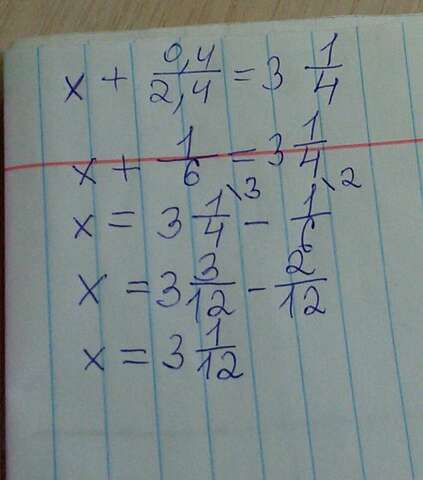 x + 0,4/2,4 = 3 1/4
x + 1/6 = 3 1/4
x = 3 1/4\3 - 1/6\2
x = 3 3/12 - 2/12
x = 3 1/12